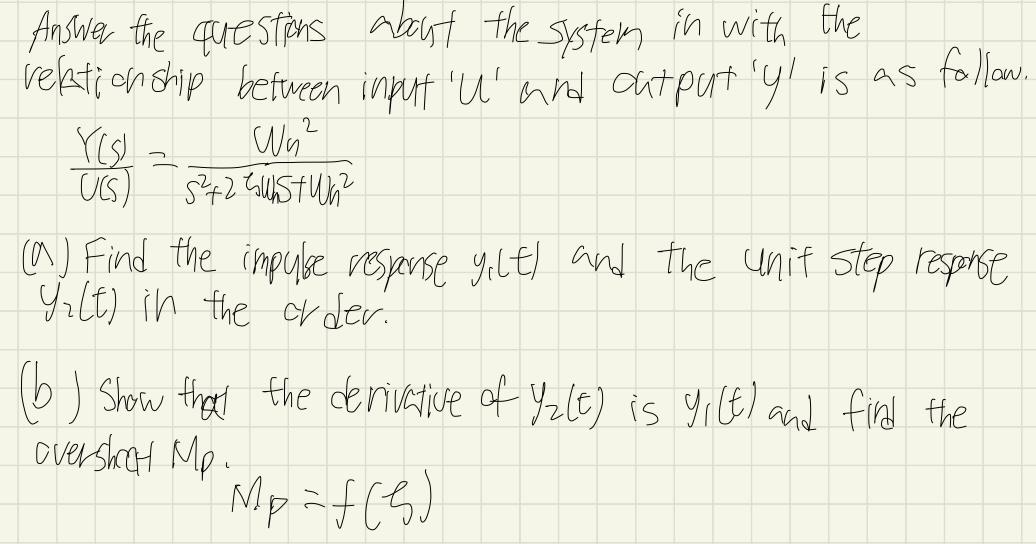 Answer the questions about the system in with the
relationship between input 'U' and output 'y' is as follow.
Y(s)/U(s) = Wn²/(s²+2ζWnS+Wn²)
(a) Find the impulse response y₁(t) and the unit step response
y₂(t) in the order.
(b) Show that the derivative of y₂(t) is y₁(t) and find the
overshoot Mp.
Mp = f(ζ)